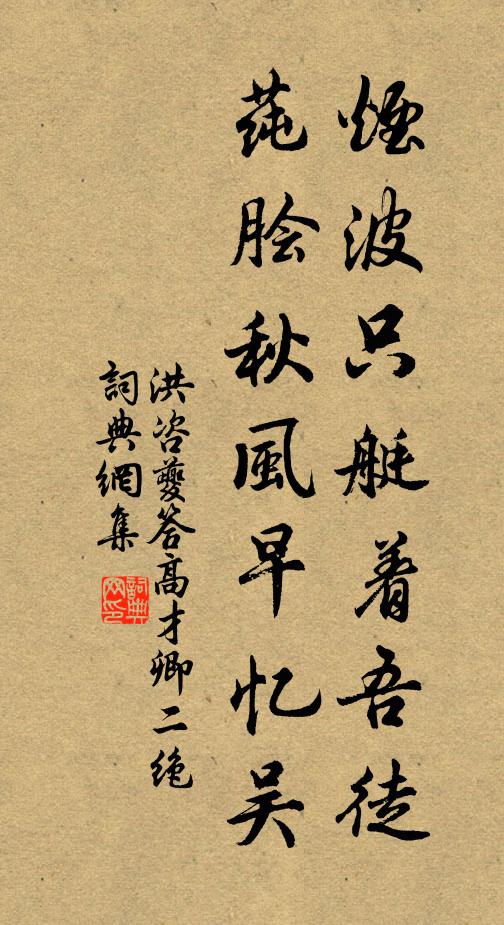 煙波只艇着吾徒
莼脍秋風早忆吴
洪咨夔答高才卿二绝
詞典網集
詞典网印